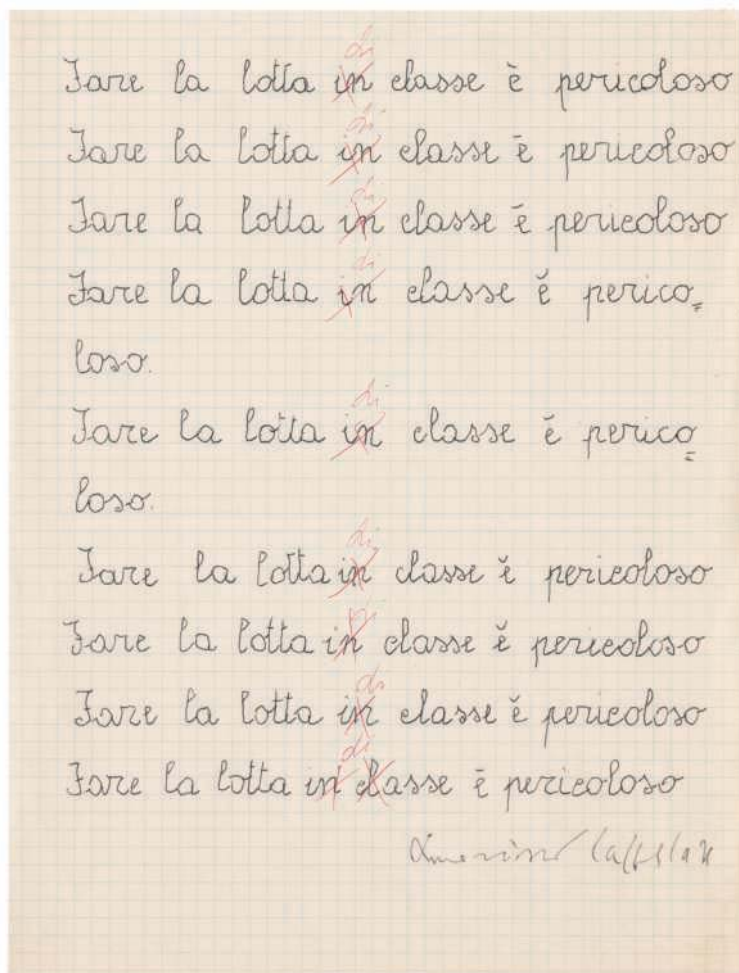 di
Fare la lotta in classe è pericoloso
di
Fare la lotta in classe è pericoloso
di
Fare la lotta in classe è pericoloso
di
Fare la lotta in classe è perico=
loso.
di
Fare la lotta in classe è perico=
loso.
di
Fare la lotta in classe è pericoloso
di
Fare la lotta in classe è pericoloso
di
Fare la lotta in classe è pericoloso
di
Fare la lotta in classe è pericoloso